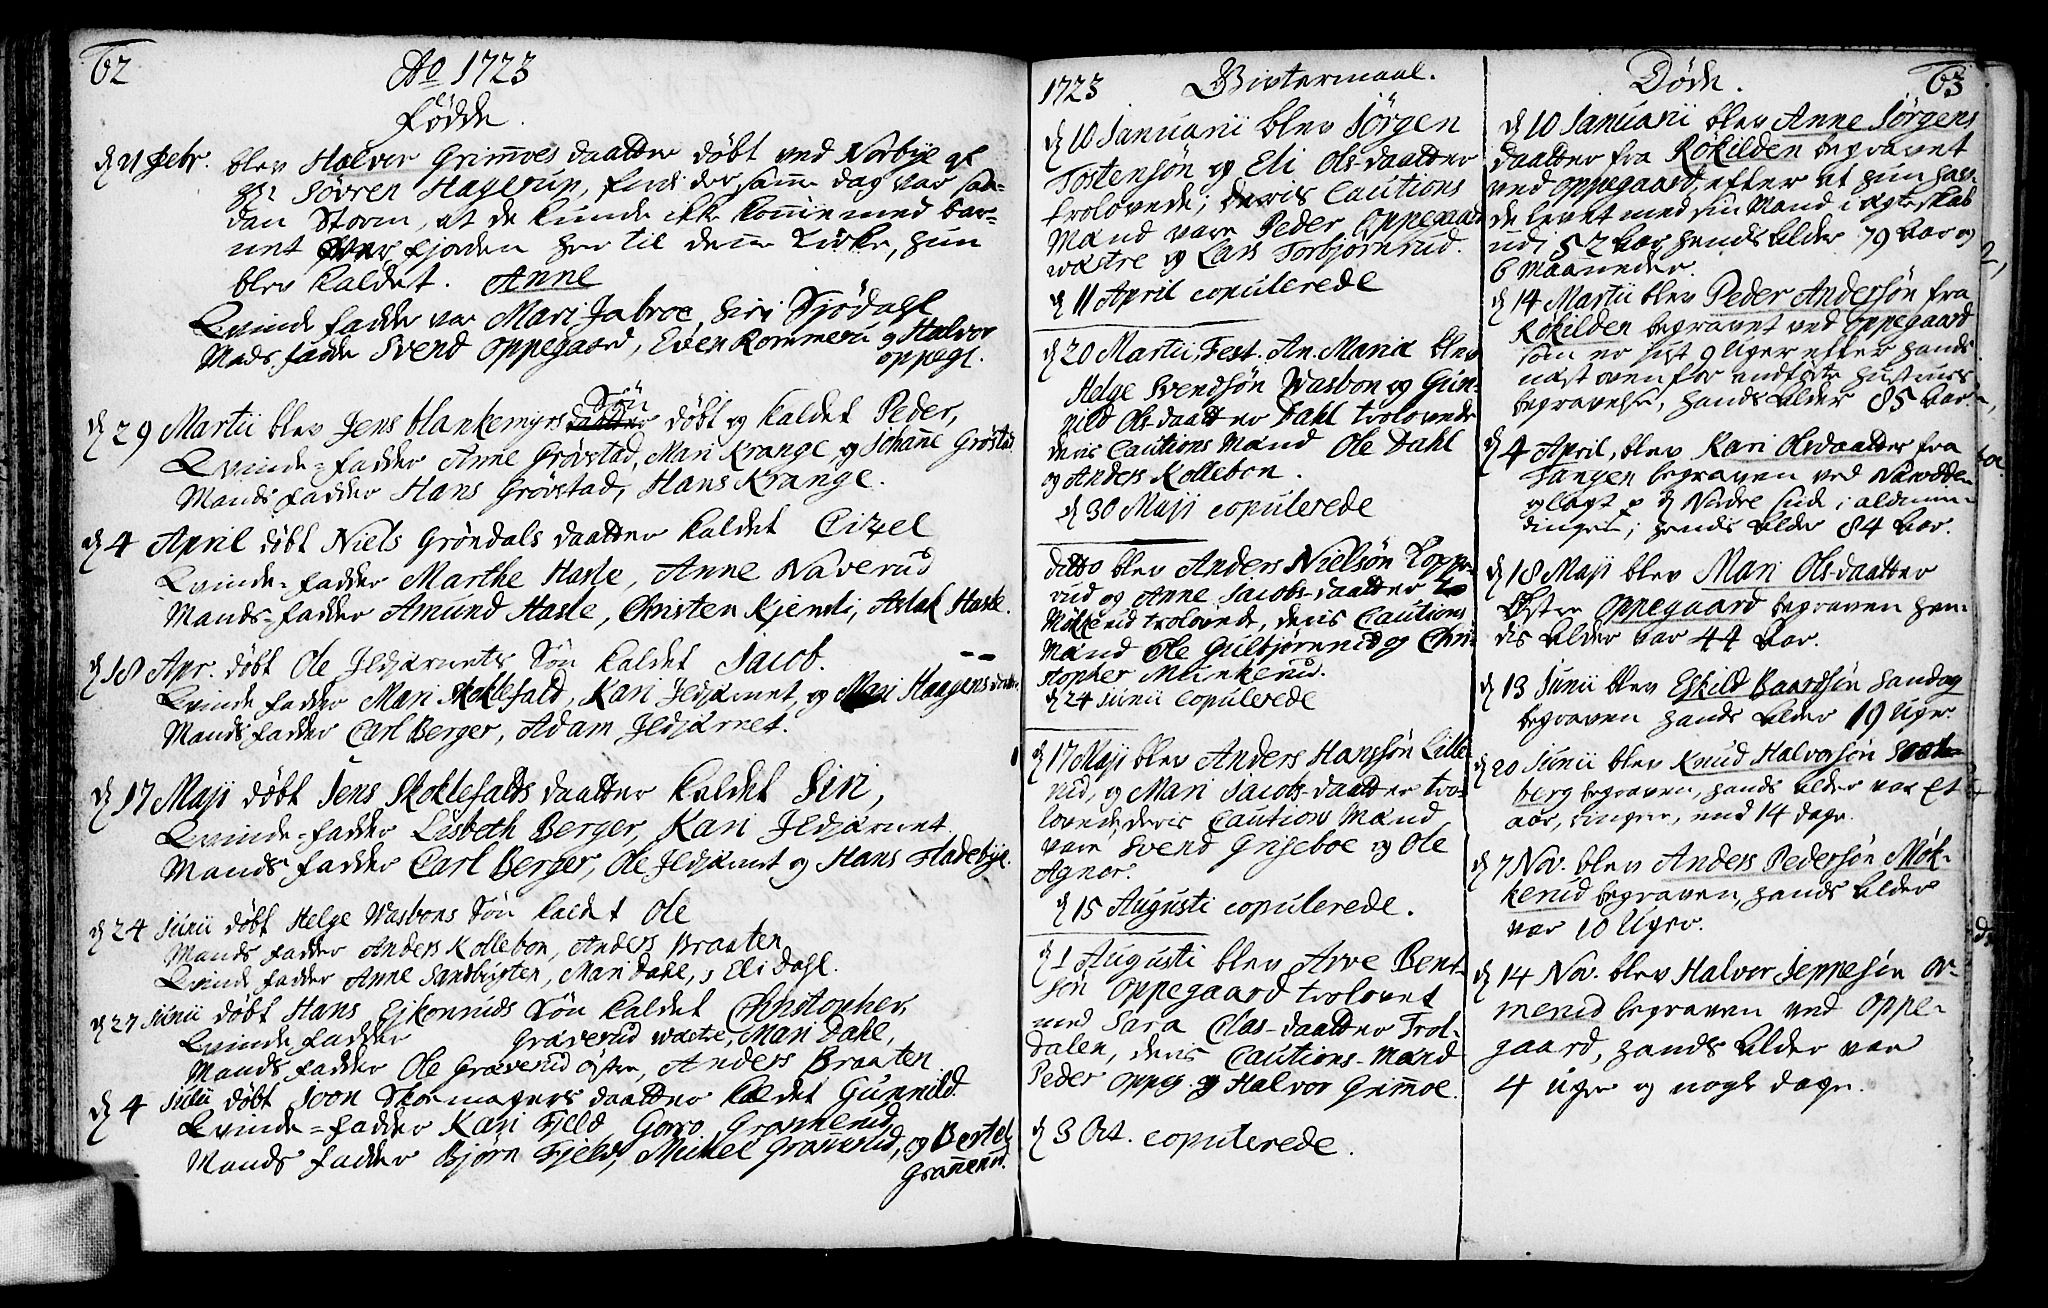 62
Ao 1723
Födde.
d 21 Febr. blev Halvor Grimoes daatter döbt ved Norbye af
Hr. Sövren Hagerup, fordi der samme dag var saa-
dan Storm, at de kunde ikke komme med bar-
net over fjorden her til denne Kirke, hun
blev kaldet. Anne
Qvinde fadder var Mari Jabroe, Siri Sjödahl
Mands fadder Svend Oppegaard, Even Kommerü og Halvor
oppeg.
d 29 Martii blev Jens blankemyrs Sön döbt og kaldet Peder,
Qvinde-fadder Anne Grövstad, Mari Krange, og Johanne Grövstad
Mands fadder Hans Grövstad, Hans Krange.
d 4 April döbt Niels Gröndals daatter kaldet Citzel
Qvinde-fadder Marthe Hasle, Anne Naverud
Mands-fadder Amund Hasle, Christen Kjendli, Aslak Hasle.
d 18 Apr. döbt Ole Jldjærnets Sön kaldet Jacob.
Qvinde fadder Mari Skoklefald, Kari Jldjærnet, og Mari Haagens
Mands fadder Carl Berger, Adam Jldjærnet.
d 17 Maji döbt Jens Skoklefalds daatter kaldet Siri,
Qvinde-fadder Lisbeth Berger, Kari Jldjærnet
Mands-fadder Carl Berger, Ole Jldjærnet og Hans Fladebÿe.
d 24 Junii döbt Helge Wasbons Sön kaldet Ole
Mands fadder Anders Kollebon, Anders Braaten
Qvinde fadder Anne Sandbugten, Mari Dahl, Eli Dahl.
d 27 Junii döbt Hans Ejkonruds Sön kaldet Christopher,
Qvinde fadder Graverud wæstre, Mari Dahl,
Mands fadder Ole Graverud östre, Anders Braaten.
d 4 Julii döbt Joon Skomagers daatter kaldet Gunnild.
Qvinde-fadder Kari Fjeld, Gorro Grannerud
Mands fadder Björn Fjeld, Michel Graverud, og Bertel
Grannerud.
1723 Givtermaal.
d 10 Januarii blev Jörgen
Tostensön og Eli Ols-daatter
trolovede; deris Cautions
Mænd vare Peder Oppegaard
wæstre og Lars Torbjörnrud.
d 11 April copulerede
d 20 Martii, Fest. An. Mariæ blev
Helge Svendsön Wasbon og Gun-
nild Ols-daatter Dahl trolovede
deris Cautions Mænd Ole Dahl
og Anders Kollebon.
d 30 Maji copulerede
ditto blev Anders Nielsön Toppe-
rud og Anne Jacobs-daatter
Mökkerud trolovede, deris Cautions
Mænd Ole Gulbjörnrud og Chri-
stopher Munkerud.
d 24 Junii copulerede
d 17 Maji blev Anders Hanssön Lille-
rud, og Mari Jacobs-daatter tro-
lovede, deris Cautions Mænd
vare Svend Griseboe og Ole
Agnor.
d 15 Augusti copulerede.
d 1 Augusti blev Arve Bent-
sön Oppegaard trolovet
med Sara Clas-daatter Trol-
dalen, deris Cautions-Mænd
Peder Oppeg. og Halvor Grimoe.
d 3 Oct. copulerede.
Döde. 63
d 10 Januarii blev Anne Jörgens
daatter fra Kökilden begravet
ved Oppegaard, efter at hun hav-
de levet med sin Mand i ægteskab
udi 52 Aar, hends Alder 79 Aar og
6 Maaneder.
d 14 Martii blev Peder Andersön fra
Kökilden begravet ved Oppegaard
som er just 9 Uger efter hands
næst ovenfor indförte hustrues
begravelse, hands Alder 85 Aar
d 4 April, blev Kari Olsdaatter fra
Tangen begraven ved Næsodden
og lagt p. d Nødre side i aldmin-
dingen; hends Alder 84 Aar.
d 18 Maji blev Mari Ols-daatter
Östre Oppegaard begraven hen-
dis Alder var 44 Aar.
d 13 Junii blev Eskild Baardsön Sandag
begraven hands Alder 19 Uger.
d 20 Junii blev Knud Halvorsön
berg begraven, hands Alder var Et
aar, ringer, end 14 dage.
d 7 Nov. blev Anders Pedersön Mök-
kerud begraven, hands Alder
var 10 Uger.
d 14 Nov. blev Halvor Jeppesön Or-
merud begraven ved Oppe-
gaard, hands Alder var
4 Uger og nogle dage.